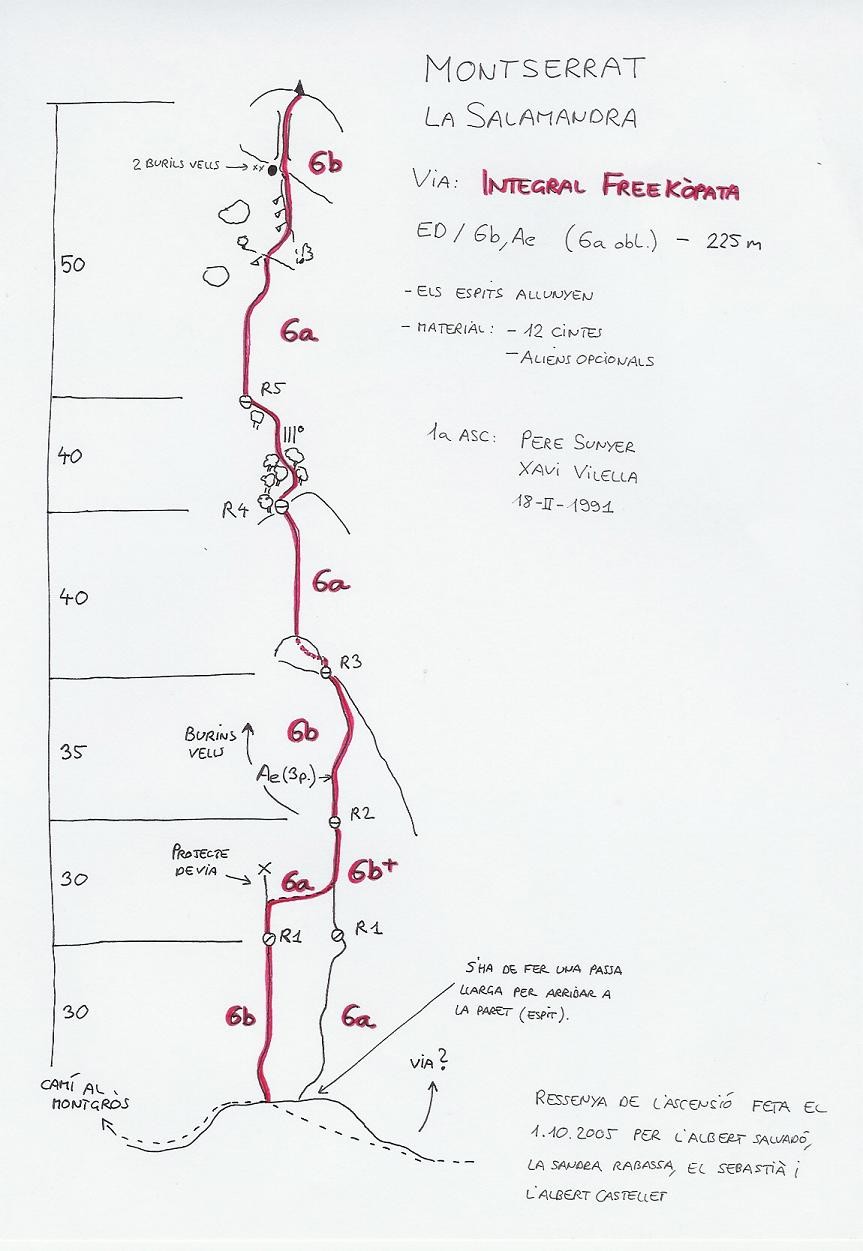 MONTSERRAT
LA SALAMANDRA
VIA: INTEGRAL FREEKÒPATA
ED / 6b, Ae (6a obl.) - 225 m
- ELS ESPITS ALLUNYEN
- MATERIAL: - 12 CINTES
- ALIENS OPCIONALS
1a ASC: PERE SUNYER
XAVI VILELLA
18-II-1991
2 BURILS VELLS
6b
50
6a
R5
IIIº
40
R4
6a
40
R3
BURINS
VELLS
6b
35
Ae (3p.)
R2
PROJECTE
DE VIA
30
X
6a
6b+
R1
R1
6b
6a
30
S'HA DE FER UNA PASSA
LLARGA PER ARRIBAR A
LA PARET (ESPIT).
VIA?
CAMÍ AL
MONTGRÒS
RESSENYA DE L'ASCENSIÓ FETA EL
1.10.2005 PER L'ALBERT SALVADÓ,
LA SANDRA RABASSA, EL SEBASTIÀ i
L'ALBERT CASTELLET